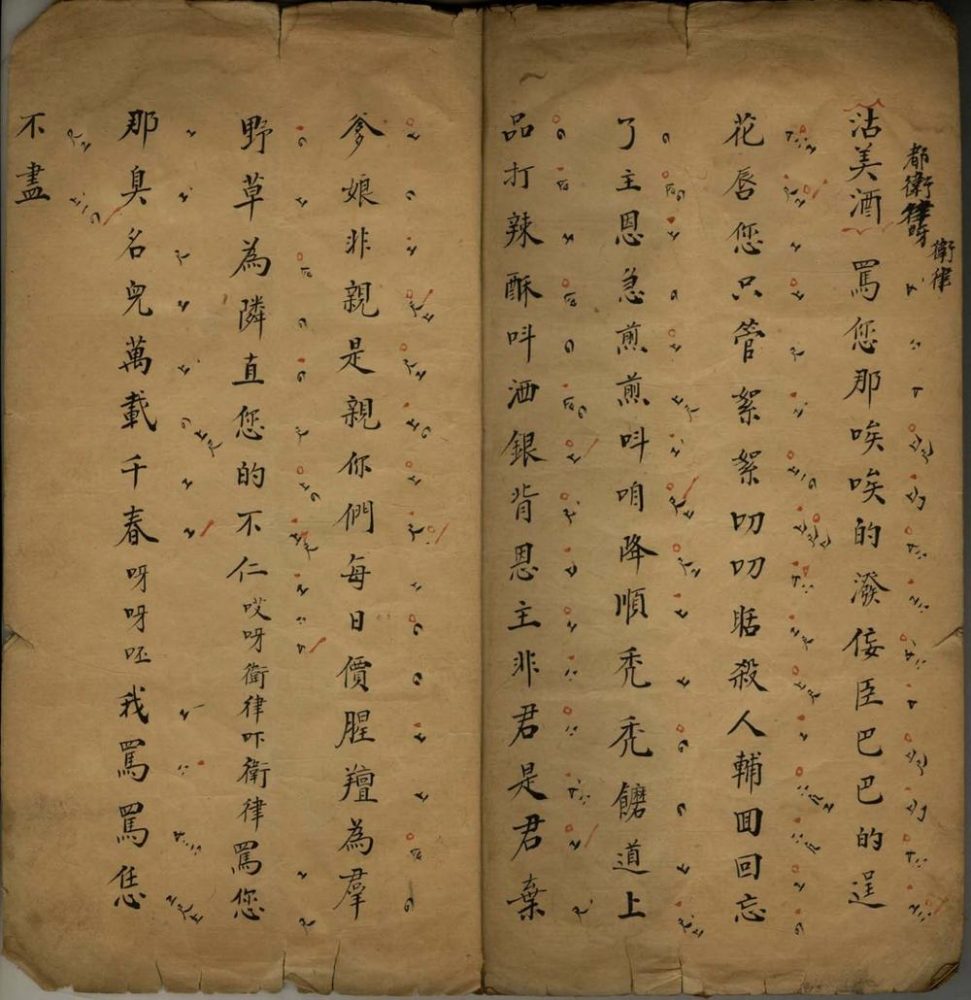 都衛律呀
衛律
沽美酒 罵您那唉唉的潑侫臣巴巴的逞
花唇您只管絮絮叨叨聒殺人輔囬回忘
了主恩急煎煎呌咱降順禿禿髍道上
品打辣酥呌洒銀背恩主非君是君棄
爹娘非親是親你們每日價腥羶為羣
野草為隣直您的不仁哎呀衛律吓衛律罵您
那臭名皃萬載千春呀呀呸我罵罵恁
不盡